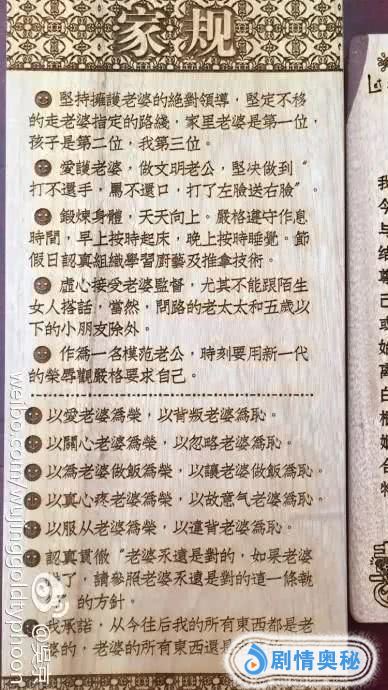 家规
堅持擁護老婆的絕對領導，堅定不移
的走老婆指定的路綫，家里老婆是第一位，
孩子是第二位，我第三位。
愛護老婆，做文明老公，堅决做到“
打不還手，罵不還口，打了左臉送右臉”。
鍛煉身體，天天向上。嚴格遵守作息
時間，早上按時起床，晚上按時睡覺。節
假日認真組織學習廚藝及推拿技術。
虛心接受老婆監督，尤其不能跟陌生
女人搭話，當然，問路的老太太和五歲以
下的小朋友除外。
作為一名模范老公，時刻要用新一代
的榮辱觀嚴格要求自己。
以愛老婆為榮，以背叛老婆為恥。
以關心老婆為榮，以忽略老婆為恥。
以為老婆做飯為榮，以讓老婆做飯為恥。
以真心疼老婆為榮，以故意气老婆為恥。
以服从老婆為榮，以違背老婆為恥。
認真貫徹“老婆永遠是對的，如果老婆
了，請參照老婆永遠是對的這一條執
的方針。
我承諾，从今往后我的所有東西都是老
婆的，老婆的所有東西還是
weibo.com/wujinggoldtyphoon
@吴京
剧情奥秘
我
今
与
给
尊
己
或
如
离
白